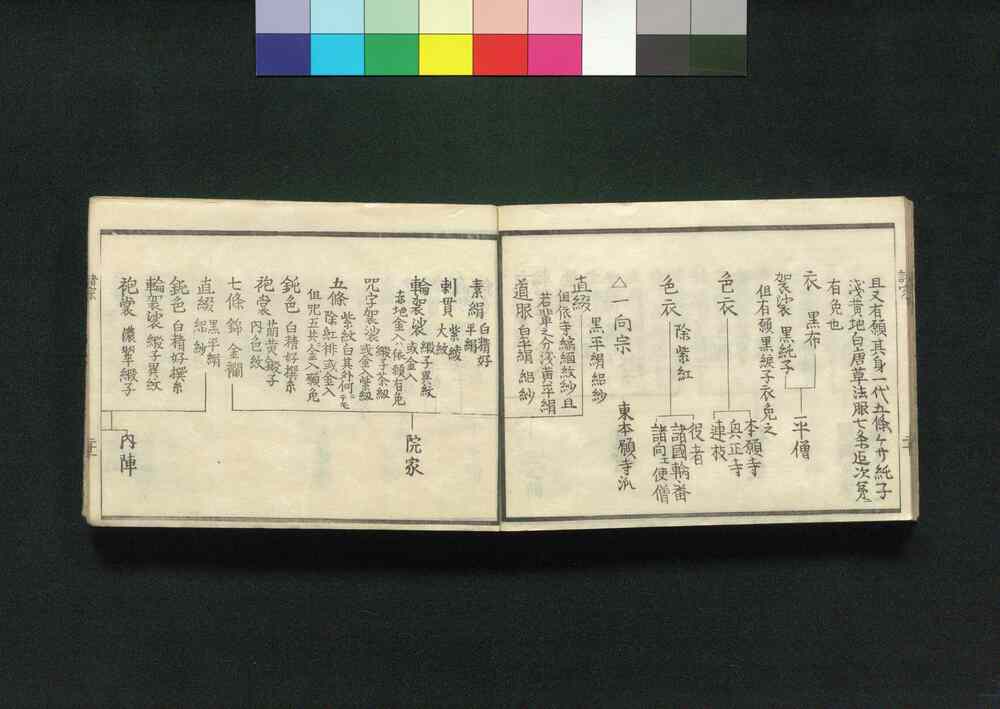 且又有願其身一代五條ケサ純子
浅黄地白唐草法服七条迄次㐧
有免也
衣 黒布
袈裟 黒純子
但有願黒綟子衣免之
平僧
色衣
本願寺
興正寺
連枝
色衣 除紫紅
役者
諸國輪番
諸向エ使僧
△一向宗 東本願寺派
直綴 黒平絹絽紗
但依寺縮緬紋紗且
若輩之分浅黄平絹
道服 白平絹 絽紗
素絹 白精好 平絹
刺貫 紫綾 大紋
輪袈裟 緞子異紋 或金入
赤地金入ハ依願有免
咒字袈裟 緞子茶緞 或金入紫緞
五條 紫紋白其外何ニテモ 除紅排或金入
但咒五共大金入願免
鈍色 白精好撰糸
袍裳 萠黄緞子 内色紋
七條 錦 金襴
院家
直綴 黒平絹 絽紗
鈍色 白精好撰糸
輪袈裟 緞子異紋
袍裳 濃翠緞子
内陣